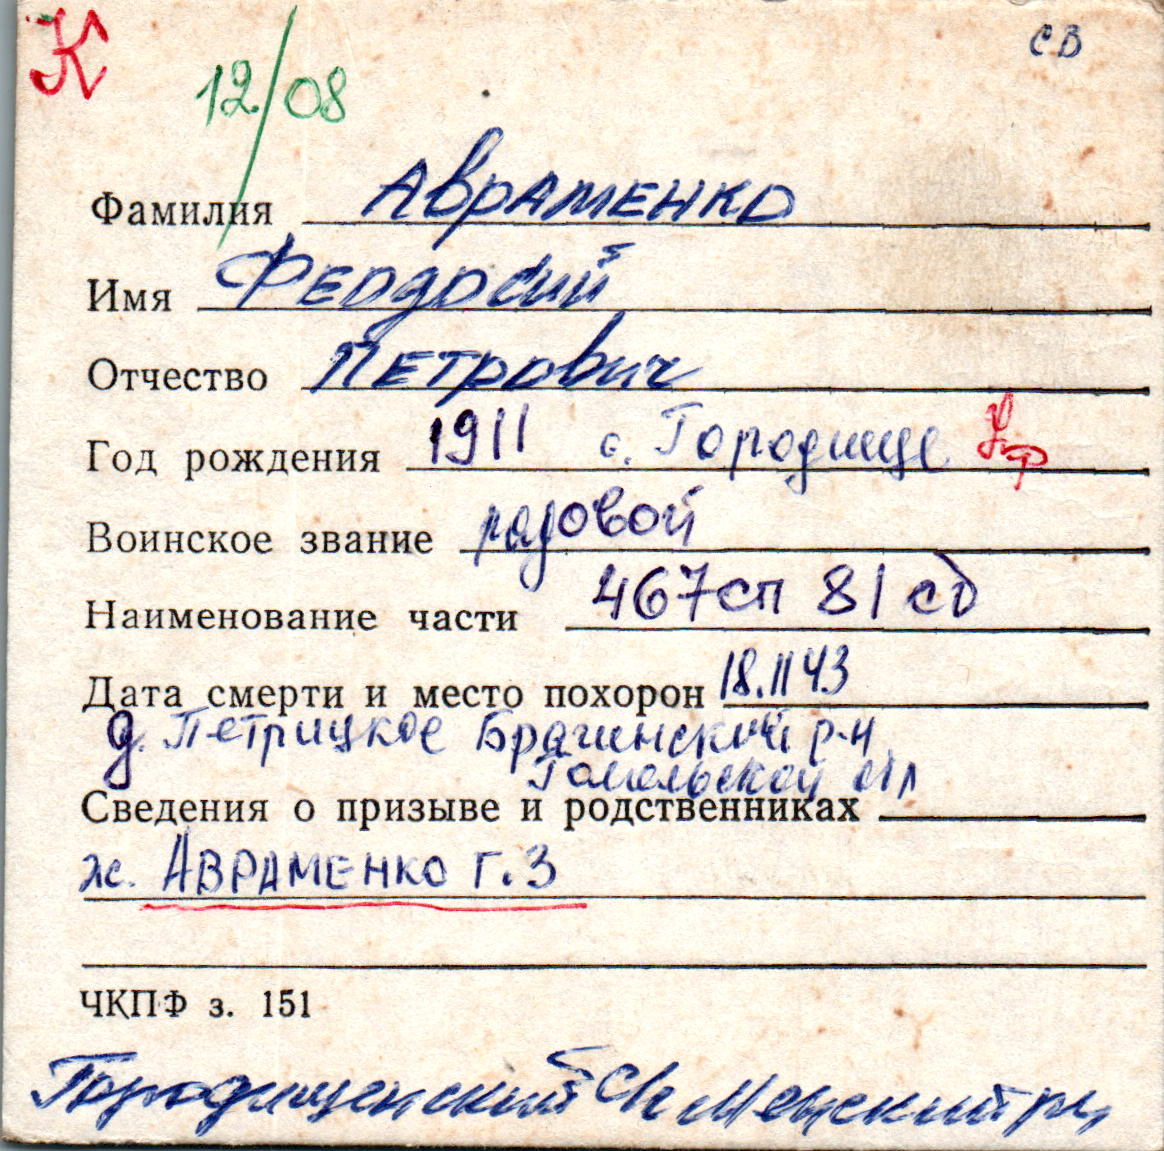 К
12/08
СВ
Фамилия Авраменко
Имя Феодосий
Отчество Петрович
Год рождения 1911 с. Городище
Воинское звание рядовой
Наименование части 467сп 81 сд
Дата смерти и место похорон 18.11 43
д. Петрицкое Брагинский р-н
Гомельской обл
Сведения о призыве и родственниках
ж. Авраменко Г.З
ЧКПФ з. 151
Городищенский с/с Менский р-н